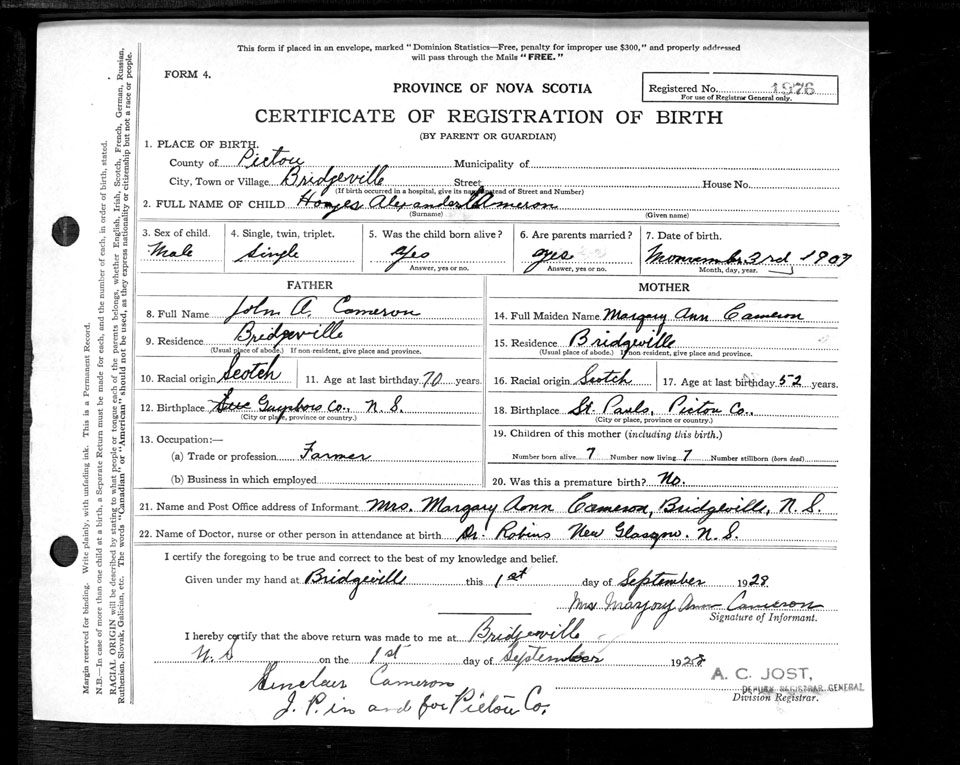 This form if placed in an envelope, marked "Dominion Statistics—Free, penalty for improper use $300," and properly addressed
will pass through the Mails "FREE."
FORM 4.
PROVINCE OF NOVA SCOTIA
Registered No. 1976
For use of Registrar General only.
CERTIFICATE OF REGISTRATION OF BIRTH
(BY PARENT OR GUARDIAN)
1. PLACE OF BIRTH.
County of Pictou Municipality of
City, Town or Village Bridgeville Street House No.
(If birth occurred in a hospital, give its name instead of Street and Number)
2. FULL NAME OF CHILD Alexander Cameron
(Surname) (Given name)
3. Sex of child. 4. Single, twin, triplet. 5. Was the child born alive? 6. Are parents married? 7. Date of birth.
Male Single Yes Yes 3rd 1907
Answer, yes or no. Answer, yes or no. Month, day, year.
FATHER MOTHER
8. Full Name John A. Cameron
14. Full Maiden Name Margary Ann Cameron
9. Residence Bridgeville
15. Residence Bridgeville
(Usual place of abode.) If non-resident, give place and province.
(Usual place of abode.) If non-resident, give place and province.
10. Racial origin Scotch 11. Age at last birthday 70 years.
16. Racial origin Scotch 17. Age at last birthday 52 years.
12. Birthplace Guysboro Co., N. S.
(City or place, province or country.)
18. Birthplace St. Pauls, Pictou Co.,
(City or place, province or country.)
13. Occupation:—
(a) Trade or profession Farmer
(b) Business in which employed
19. Children of this mother (including this birth.)
Number born alive 7 Number now living 7 Number stillborn (born dead)
20. Was this a premature birth? No.
21. Name and Post Office address of Informant Mrs. Margary Ann Cameron, Bridgeville, N. S.
22. Name of Doctor, nurse or other person in attendance at birth Dr. Robins New Glasgow. N. S.
I certify the foregoing to be true and correct to the best of my knowledge and belief.
Given under my hand at Bridgeville this 1st day of September 1928
Mrs Marjory Ann Cameron
Signature of Informant.
I hereby certify that the above return was made to me at Bridgeville
N. S on the 1st day of September 1928
Sinclair Cameron
J. P. in and for Pictou Co.
A. C. JOST,
DEPUTY REGISTRAR GENERAL
Division Registrar.
Margin reserved for binding. Write plainly, with unfading ink. This is a Permanent Record.
N.B.—In case of more than one child at a birth, a Separate Return must be made for each, and the number of each, in order of birth, stated.
RACIAL ORIGIN will be described by stating to what people or tongue each of the parents belongs, whether English, Irish, Scotch, French, German, Russian,
Ruthenian, Slovak, Galician, etc. The words "Canadian" or "American" should not be used, as they express nationality or citizenship but not a race or people.